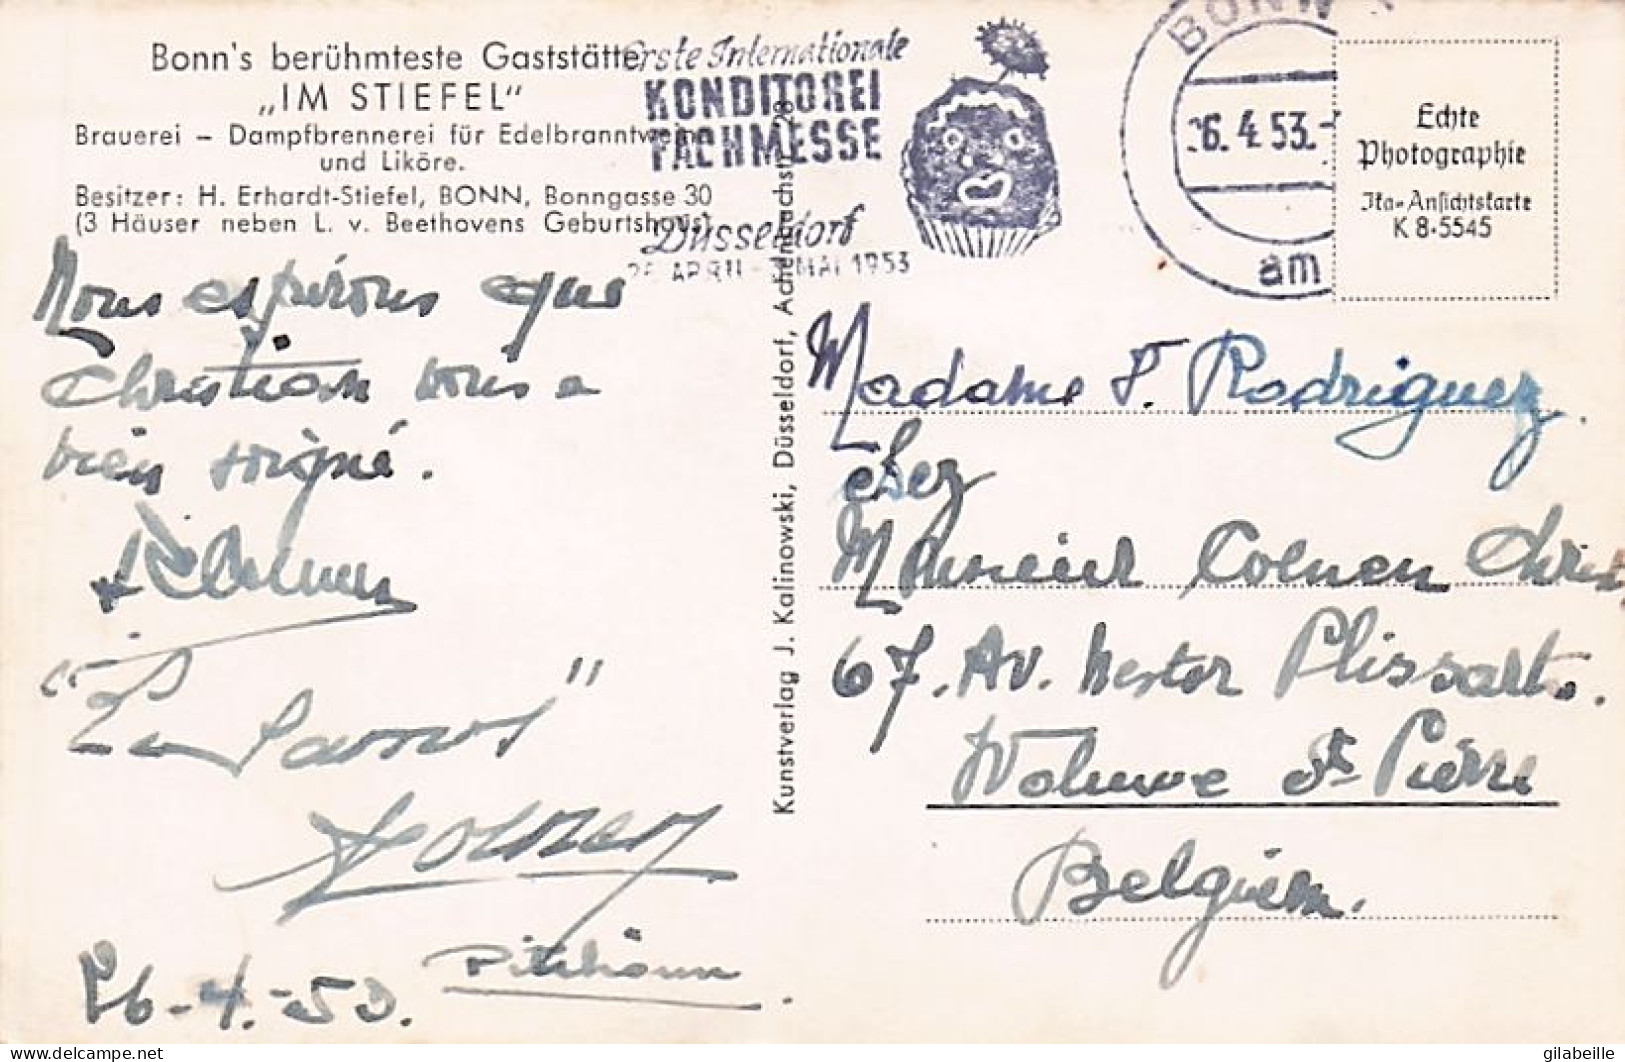 Bonn's berühmteste Gaststätte
„IM STIEFEL"
Brauerei – Dampfbrennerei für Edelbranntweine
und Liköre.
Besitzer: H. Erhardt-Stiefel, BONN, Bonngasse 30
(3 Häuser neben L. v. Beethovens Geburtshaus)
Erste Internationale
KONDITOREI
FACHMESSE
Düsseldorf
APRIL - MAI 1953
BONN
6.4.53.-
am
Echte
Photographie
Ika-Ansichtskarte
K 8.5545
Nous espérons que
Christian vous a
bien soigné.
26-4.-53.
Kunstverlag J. Kalinowski, Düsseldorf, Achenbachstr. 28
Madame F. Rodriguez.
chez
Monsieur Colnen Chris
67. Av. Nestor Plissart.
Woluwe St Pierre
Belgium.
delcampe.net
gilabeille